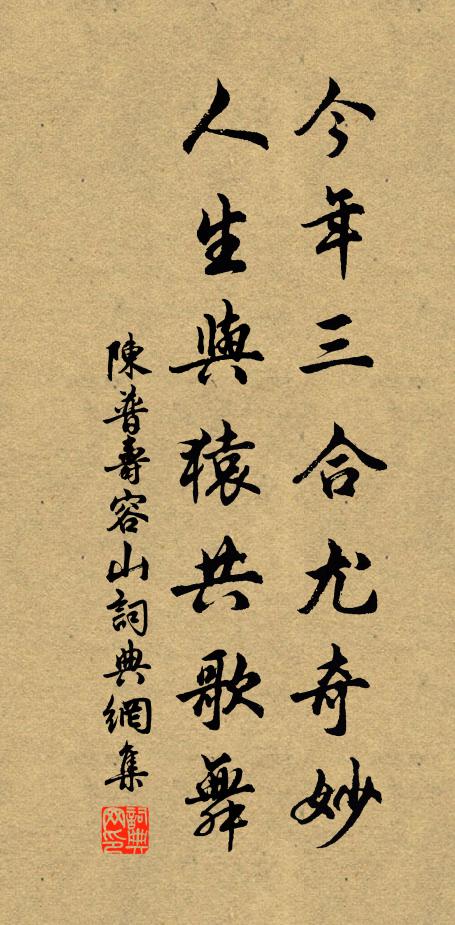 今年三合尤奇妙
人生與猿共歌舞
陳普壽容山詞典網集
詞典網印